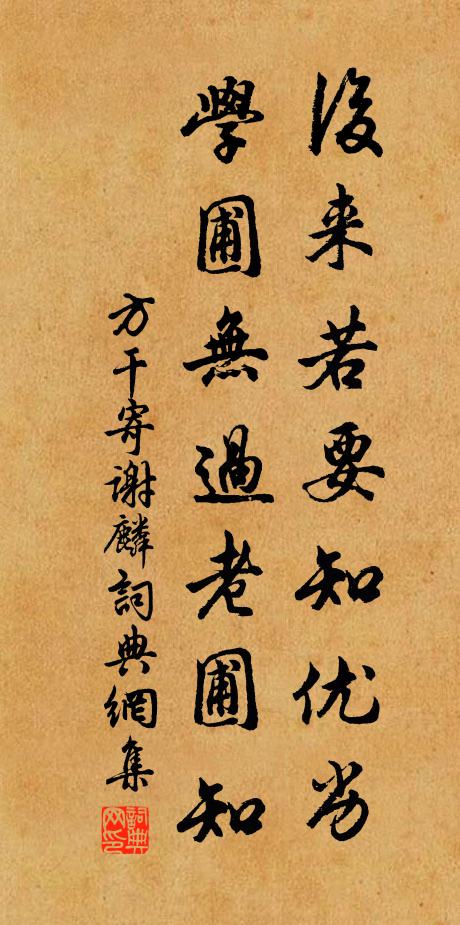 後来若要知优劣
學圃無過老圃知
方干寄谢麟詞典網集
詞典网印